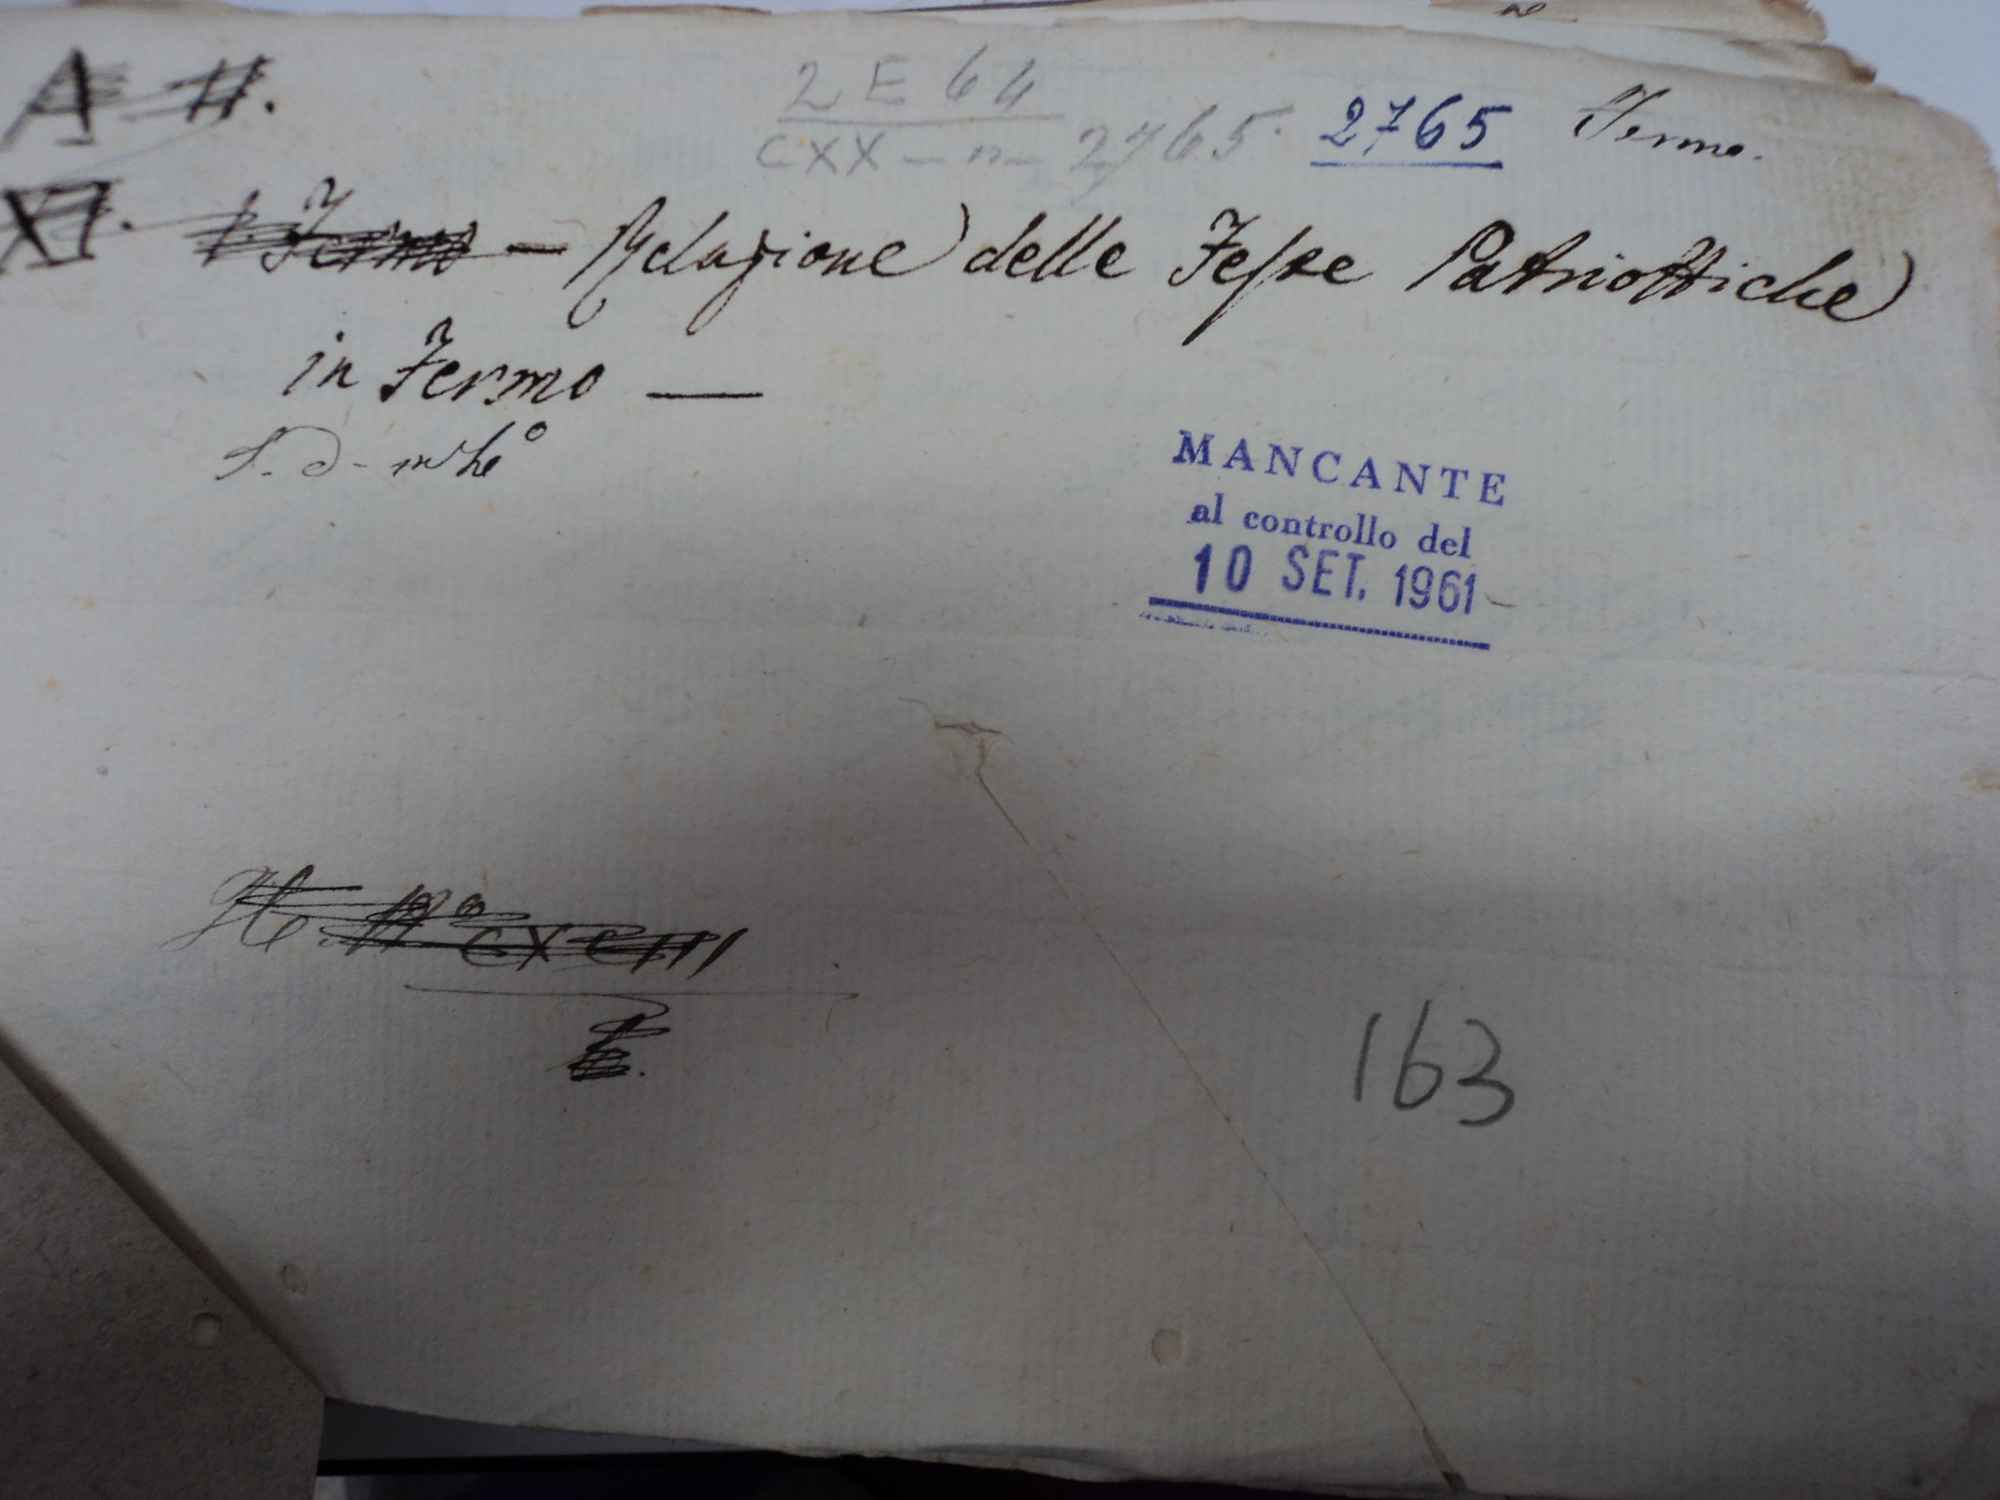 A II.
2 E 64
CXX - n - 2765. 2765 Fermo.
XI. Fermo - Relazione delle Feste Patriottiche
in Fermo —
MANCANTE
al controllo del
10 SET. 1961
163